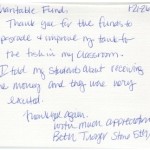 Charitable Fund, 1-21-26
Thank you for the funds to
upgrade & improve my tank for
the tech in my classroom.
I told my students about receiving
the money and they were very
excited.
Thank you again
with much appreciation
Beth